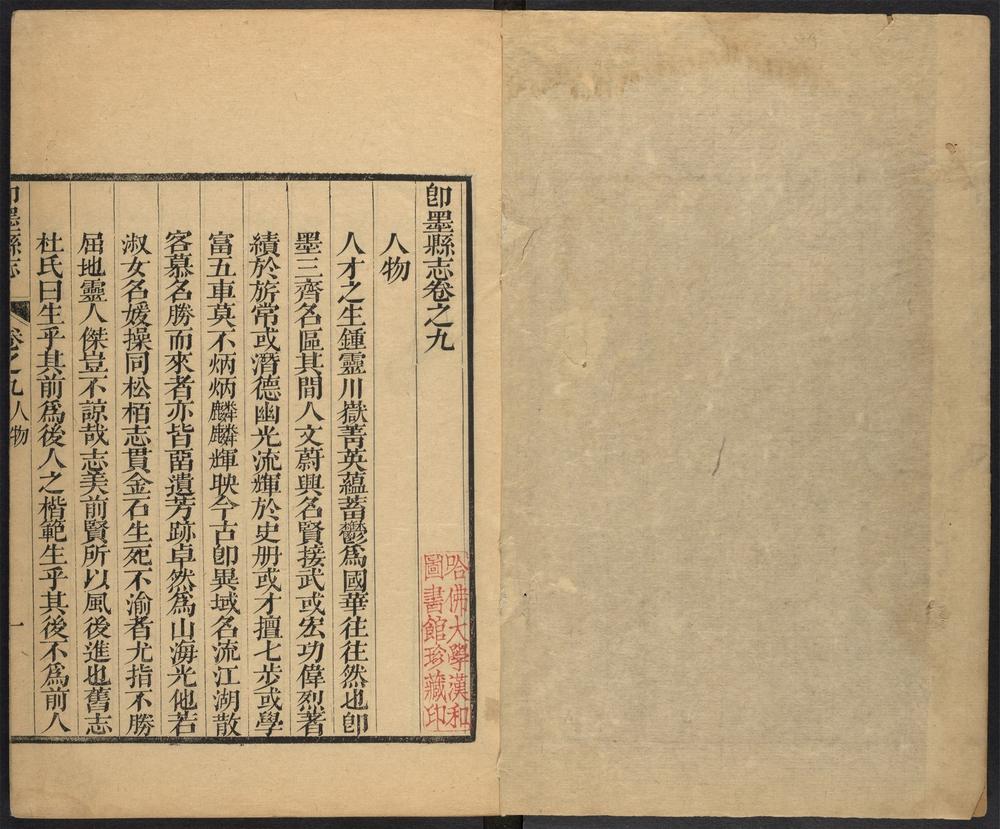 卽墨縣志卷之九
人物
人才之生鍾靈川嶽菁英蘊蓄鬱爲國華往往然也卽
墨三齊名區其間人文蔚興名賢接武或宏功偉烈著
績於旂常或潛德幽光流輝於史册或才擅七步或學
富五車莫不炳炳麟麟輝映今古卽異域名流江湖散
客慕名勝而來者亦皆畱遺芳跡卓然爲山海光他若
淑女名媛操同松栢志貫金石生死不渝者尤指不勝
屈地靈人傑豈不諒哉志美前賢所以風後進也舊志
杜氏曰生乎其前爲後人之楷範生乎其後不爲前人
卽墨縣志 卷之九 人物 一
哈佛大學漢和
圖書館珍藏印